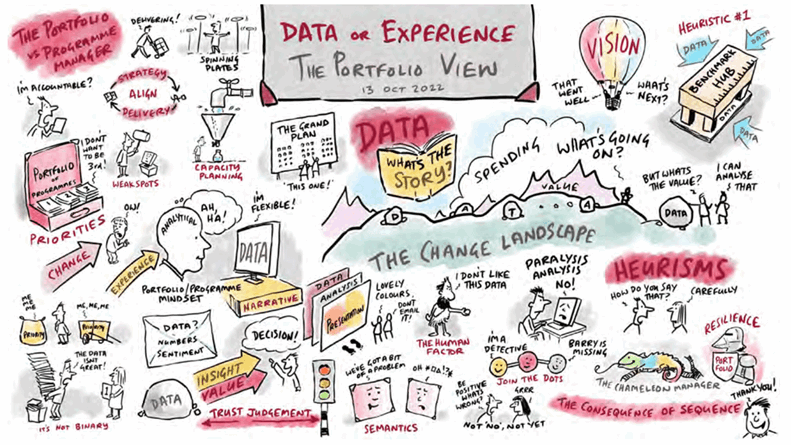 THE PORTFOLIO
VS PROGRAMME
MANAGER
DELIVERING!
SPINNING
PLATES
I'M ACCOUNTABLE?
STRATEGY
ALIGN
DELIVERY
CAPACITY
PLANNING
I DON'T
WANT
TO BE
3rd!
WEAKSPOTS
PORTFOLIO
OF
PROGRAMMES
PRIORITIES
DATA OR EXPERIENCE
THE PORTFOLIO VIEW
13 OCT 2022
THE GRAND
PLAN
"THIS ONE!"
DATA
WHAT'S THE
STORY?
SPENDING
WHAT'S GOING
ON?
VALUE
DATA
THE CHANGE LANDSCAPE
VISION
THAT
WENT
WELL
WHAT'S
NEXT?
HEURISTIC #1
DATA
DATA
BENCHMARK
HUB
DATA
DATA
BUT WHATS
THE VALUE?
I CAN
ANALYSE
THAT
DATA
CHANGE
OW!
EXPERIENCE
ANALYTICAL
AH,
HA!
I'M
FLEXIBLE!
DATA
NARRATIVE
PORTFOLIO/PROGRAMME
MINDSET
ME
ME
ME
PRIORITY
ME, ME, ME
PRIORITY
THE DATA
ISN'T
GREAT!
IT'S NOT BINARY
DATA?
NUMBERS
SENTIMENT
DECISION!
DATA
INSIGHT
VALUE
TRUST JUDGEMENT
DATA
ANALYSIS
PRESENTATION
LOVELY
COLOURS
DONT
EMAIL
IT!
I DON'T LIKE
THIS DATA
THE HUMAN
FACTOR
PARALYSIS
ANALYSIS
NO!
WE'VE GOT A BIT
OF A PROBLEM
SEMANTICS
I'M A
DETECTIVE
BARRY IS
MISSING
JOIN THE DOTS
BE
POSITIVE
WHATS
WRONG?
GRRR
'NOT 'NO', NOT YET
HEURISMS
HOW DO YOU SAY
THAT?
CAREFULLY
RESILIENCE
PORT
FOLIO
THE CHAMELEON MANAGER
THE CONSEQUENCE OF SEQUENCE
THANK YOU!